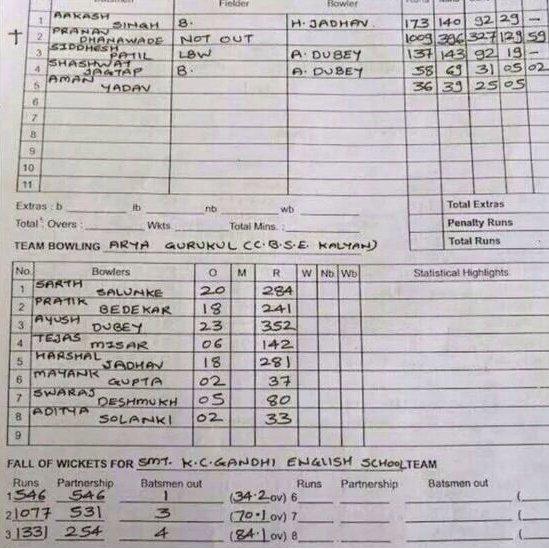 Fielder Bowler
1 AAKASH SINGH B. H. JADHAV. 173 140 92 29 -
2 PRANAV DHANAWADE NOT OUT 1009 396 327 129 59
3 SIDDHESH PATIL LBW A. DUBEY 137 143 92 19 -
4 SHASHWAT JAGTAP B. A. DUBEY 58 69 31 05 02
5 AMAN YADAV 36 39 25 05
6
7
8
9
10
11
Extras : b lb nb wb Total Extras
Total : Overs : Wkts Total Mins. : Penalty Runs
Total Runs
TEAM BOWLING ARYA GURUKUL (C.B.S.E. KALYAN)
No. Bowlers O M R W Nb Wb Statistical Highlights
1 SARTH SALUNKE 20 284
2 PRATIK BEDEKAR 18 241
3 AYUSH DUBEY 23 352
4 TEJAS MISAR 06 142
5 HARSHAL JADHAV 18 281
6 MAYANK GUPTA 02 37
7 SWARAJ DESHMUKH 05 80
8 ADITYA SOLANKI 02 33
9
FALL OF WICKETS FOR SMT. K.C.GANDHI ENGLISH SCHOOL TEAM
Runs Partnership Batsmen out Runs Partnership Batsmen out
1 546 546 1 (34.2 ov) 6 (
2 1077 531 3 (70.1 ov) 7 (
3 1331 254 4 (84.1 ov) 8 (